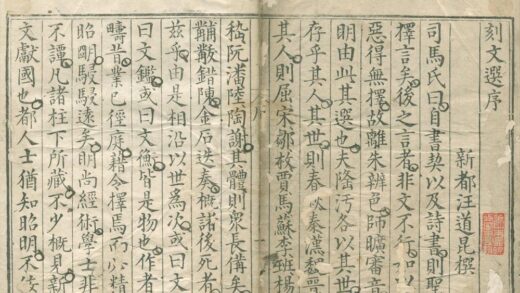 刻文選序
新都汪道昆撰
司馬氏曰自書契以及詩書則聖
擇言矣後之言者非文不行如以
惡得無擇故離朱辨色師曠審音
明由此其選也夫隆汚各以其世
存乎其人其世則春秋秦漢魏晉
其人則屈宋鄒枚賈馬蘇李班楊
嵇阮潘陸陶謝其體則眾長備矣
黼黻錯陳金石迭奏概諸後死者
茲乎由是相沿以世為次或曰文
曰文鑑或曰文 皆是物也作者
疇昔業已徑庭藉令擇焉而 精
昭明駸駸遠矣明尚經術學士非
不譚凡諸柱下所藏不少概見新
文獻國也都人士猶知昭明不佞